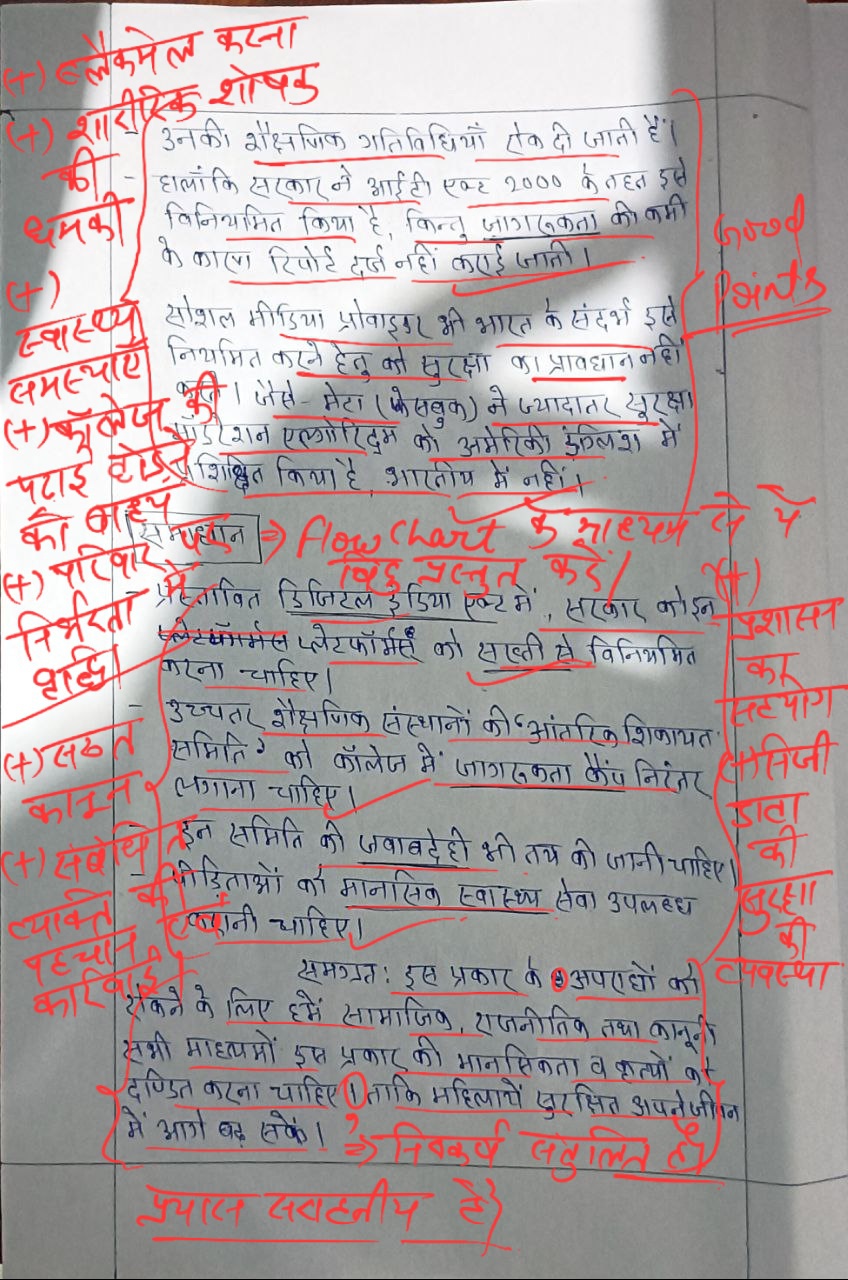 (+) ब्लैकमेल करना
(+) शारीरिक शोषण
की
धमकी
(+)
स्वास्थ्य
समस्याएँ
(+) कॉलेज की
पढाई छोड़ने
को बाध्य
(+) परिवार पर
निर्भरता में
वृद्धि।
- उनकी शैक्षणिक गतिविधियाँ रोक दी जाती हैं।
- हालाँकि सरकार ने आईटी एक्ट 2000 के तहत इसे
विनियमित किया है, किन्तु जागरूकता की कमी
के कारण रिपोर्ट दर्ज नहीं कराई जाती।
सोशल मीडिया प्रोवाइडर भी भारत के संदर्भ इसे
नियमित करने हेतु को सुरक्षा का प्रावधान नहीं
करते। जैसे- मेटा (फेसबुक) ने ज्यादातर सुरक्षा
मॉडरेशन एल्गोरिद्म को अमेरिकी इंग्लिश में
प्रशिक्षित किया है, भारतीय में नहीं।
Good
Points
समाधान ⇒ Flow Chart के माध्यम से ये
बिंदु प्रस्तुत करें।
- प्रस्तावित डिजिटल इंडिया एक्ट में, सरकार को इन
प्लेटफॉर्मस प्लेटफॉर्म्स को सख्ती से विनियमित
करना चाहिए।
- उच्चतर शैक्षणिक संस्थानों की 'आंतरिक शिकायत
समिति' को कॉलेज में जागरूकता कैंप निरंतर
लगाना चाहिए।
- इन समिति की जवाबदेही भी तय की जानी चाहिए।
पीडिताओं को मानसिक स्वास्थ्य सेवा उपलब्ध
करानी चाहिए।
(+) सख्त
कानून
(+) संबंधित
व्यक्ति की
पहचान एवं
कार्रवाई।
(+)
प्रशासन
का
सहयोग
(+) निजी
डाटा
की
सुरक्षा
की
व्यवस्था
समग्रत: इस प्रकार के अपराधों को
रोकने के लिए हमें सामाजिक, राजनीतिक तथा कानूनी
सभी माध्यमों इस प्रकार की मानसिकता व कृत्यों को
दण्डित करना चाहिए। ताकि महिलायें सुरक्षित अपने जीवन
में आगे बढ़ सकें।
?
⇒ निष्कर्ष संतुलित है।
प्रयास सराहनीय है।